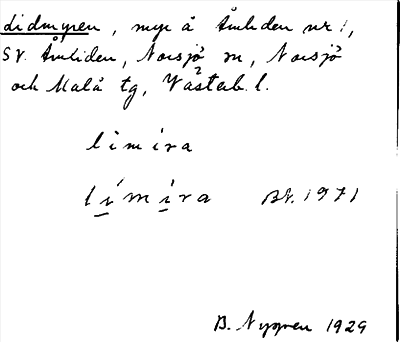 Lidmyren, myr å Åmliden nr 1,
SV. Åmliden, Norsjö sn, Norsjö
och Malå tg, Västerb. l.
limira
limira Bt. 1971
B. Nygren 1929